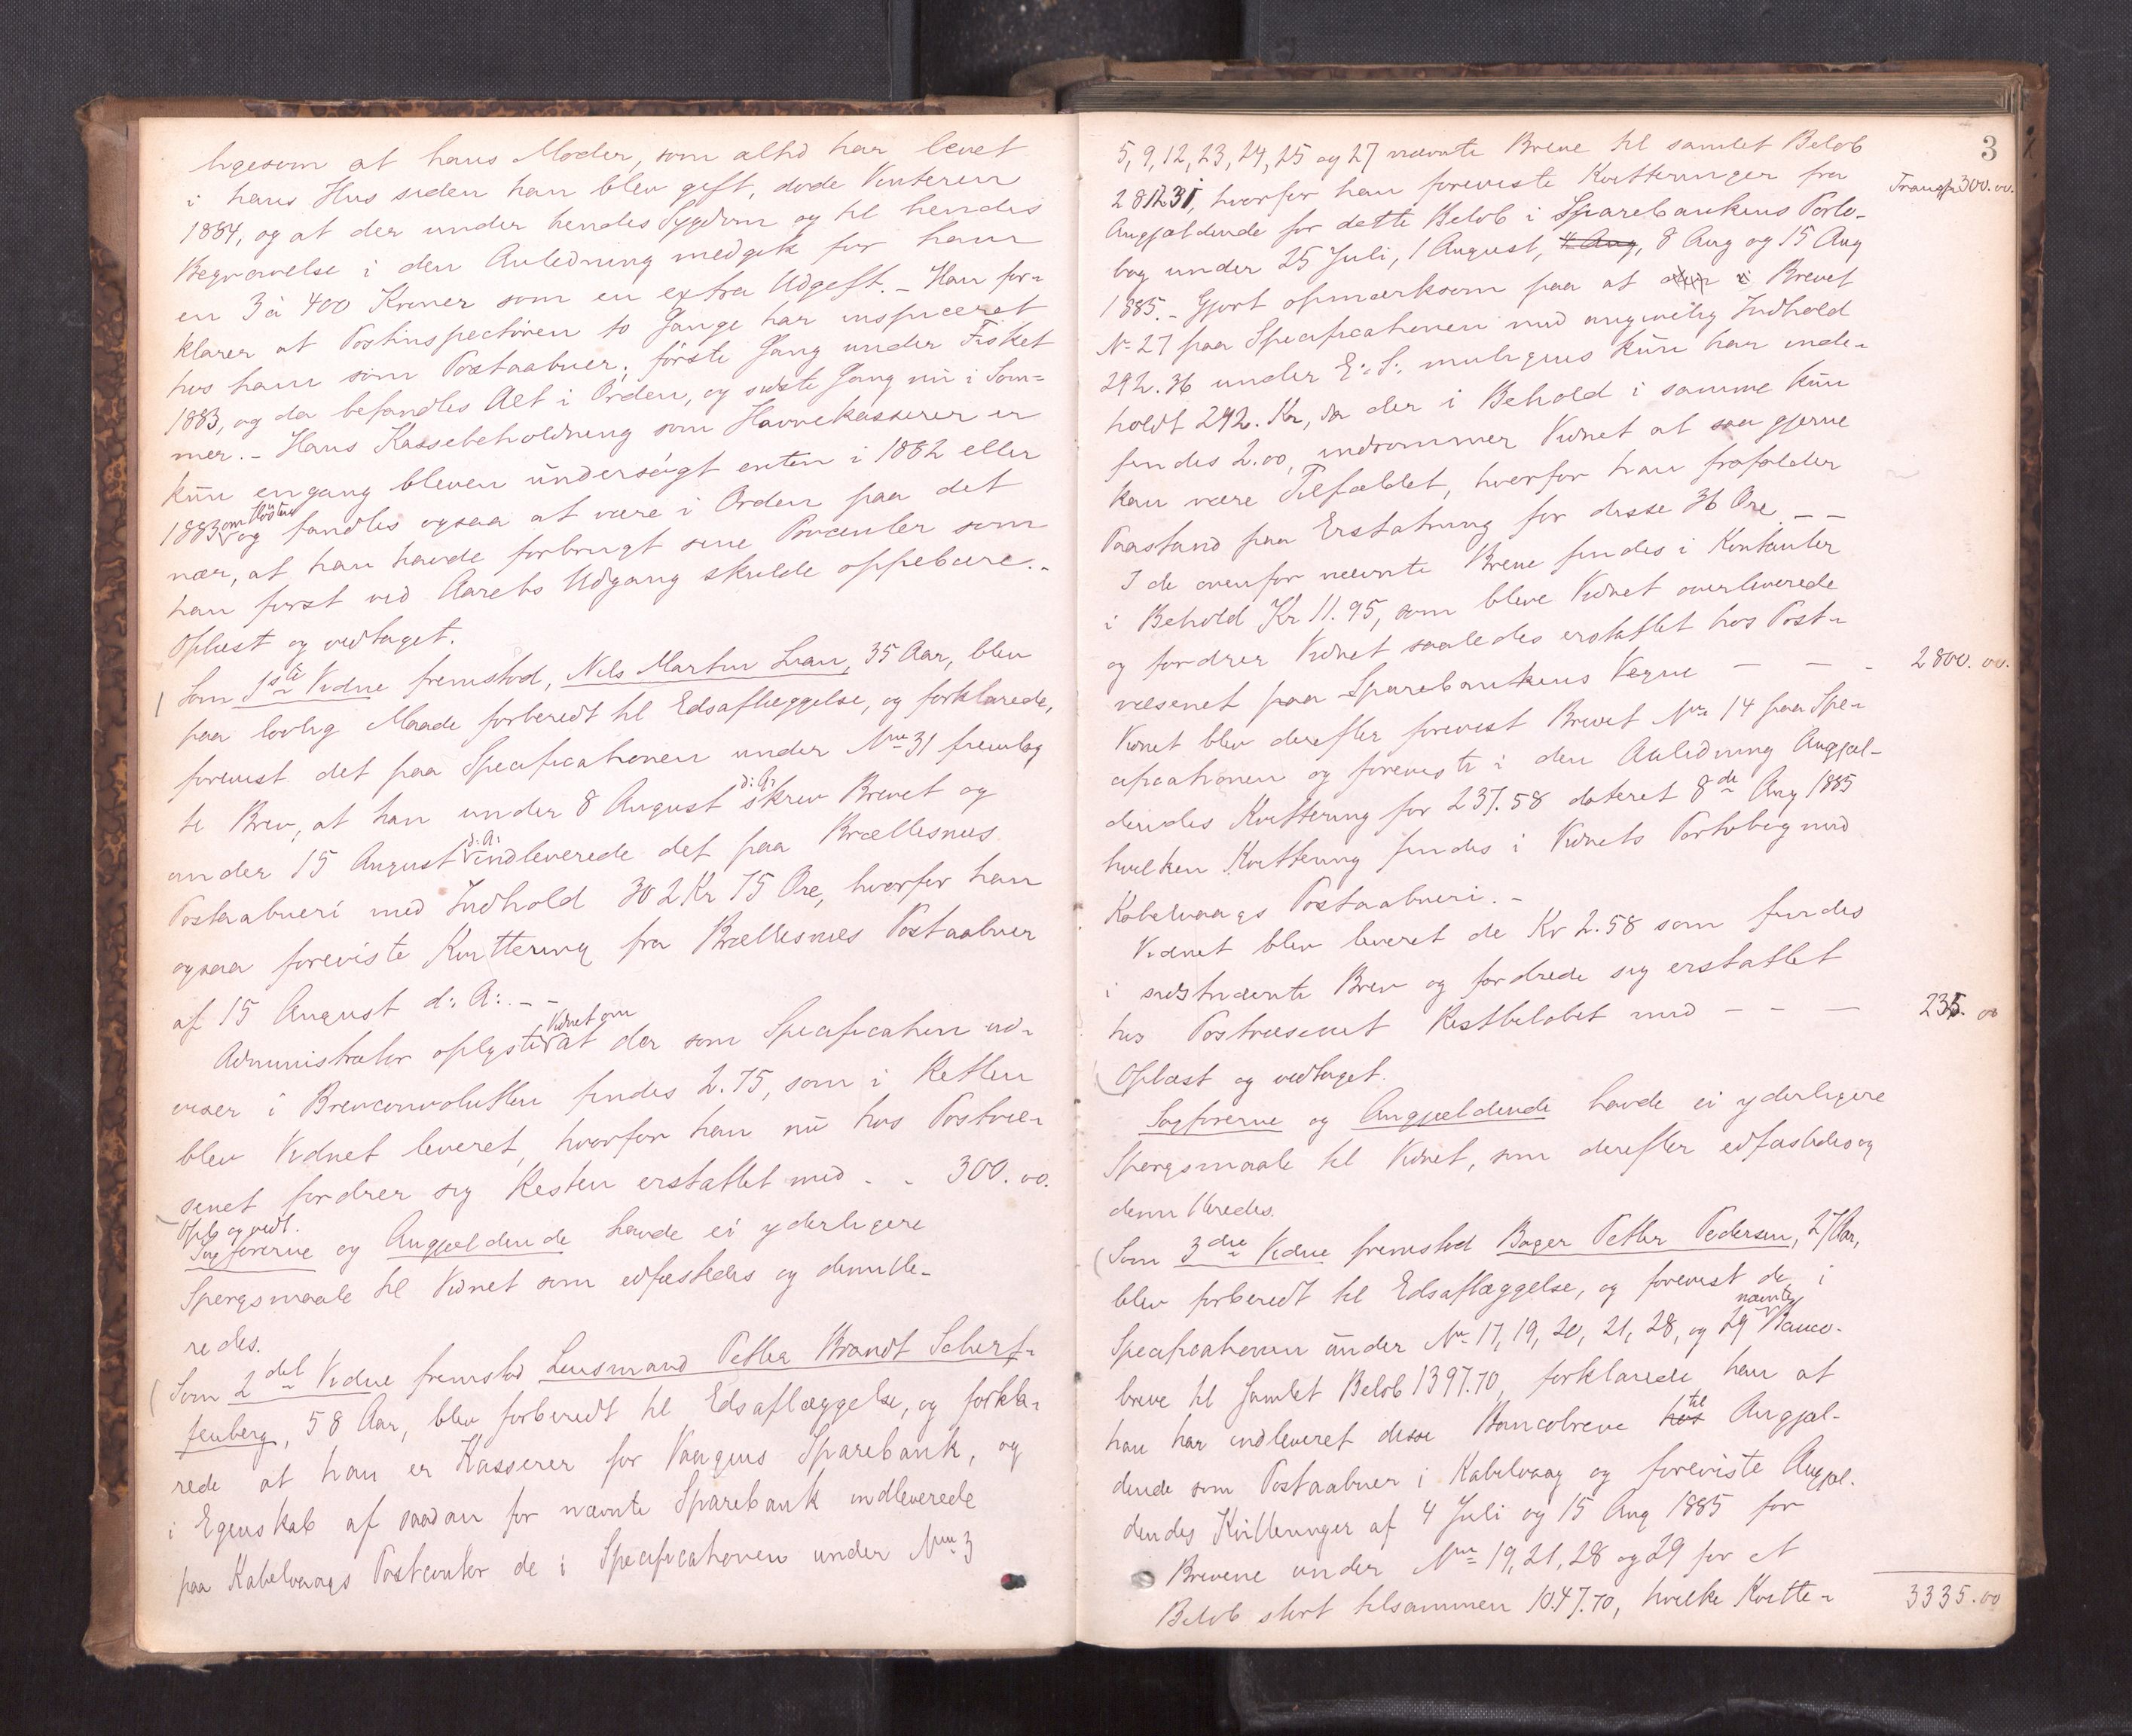 ligesom at hans Moder, som altid har levet
i hans Hus siden han blev gift, døde Vinteren
1884, og at der under hendes Sygdom og til hendes
Begravelse i den Anledning medgik for ham
en 3 à 400 Kroner som en extra Udgift. - Han for-
klarer at Postinspectøren to Gange har inspiceret
hos ham som Postaabner, første Gang under Fisket
1883, og da befandtes Alt i Orden, og sidste Gang nu i Som-
mer. - Hans Kassebeholdning som Havnekasserer er
kun engang bleven undersøgt enten i 1882 eller
1883 om Høsten og fandtes ogsaa at være i Orden paa det
nær, at han havde forbrugt sine Procenter som
han først ved Aarets Udgang skulde oppebære. -
Oplæst og vedtaget.
Som 1ste Vidne fremstod, Nils Martin Lian, 35 Aar, blev
paa lovlig Maade forberedt til Edsaflæggelse, og forklarede,
forevist det paa Specificationen under No 31 fremlag
te Brev, at han under 8 August d: A: skrev Brevet og
under 15 August d: A: indleverede det paa Brettesnæs
Postaabneri med Indhold 302 Kr 75 Øre, hvorfor han
ogsaa foreviste Kvittering fra Brettesnæs Postaabner
af 15 August d: A: - -
Administrator oplyste Vidnet om at der som Specification ud-
viser i Brevconvolutten findes 2.75, som i Retten
blev Vidnet leveret, hvorfor han nu hos Postvæ-
senet fordrer sig Resten erstattet med - - 300.00.
Opl. og vedt.
Sagførerne og Angjældende havde ei yderligere
Spørgsmaale til Vidnet som edfæstedes og dimitte-
redes.
(Som 2det Vidne fremstod Lensmand Petter Brandt Scherf-
fenberg, 58 Aar, blev forberedt til Edsaflæggelse, og forkla-
rede at han er Kasserer for Vaagens Sparebank, og
i Egenskab af saadan for nævnte Sparebank indleverede
paa Kabelvaags Postcontor de i Specificationen under No 3
3
5, 9, 12, 23, 24, 25 og 27 nævnte Breve til samlet Beløb
Transp. 300.00.
2812.31, hvorfor han foreviste Kvitteringer fra
Angjældende for dette Beløb i Sparebankens Porto-
bog under 25 Juli, 1 August, 4 Aug, 8 Aug og 15 Aug
1885. - Gjort opmærksom paa at Brevet
No 27 paa Specificationen med angivelig Indhold
292.36 under E: S: muligens kun har inde-
holdt 292. Kr, da der i Behold i samme kun
findes 2.00, indrømmer Vidnet at saa gjerne
kan være Tilfældet, hvorfor han frafalder
Paastand paa Erstatning for disse 36 Øre. - -
I de ovenfor nævnte Breve findes i Kontanter
i Behold Kr 11.95, som bleve Vidnet overleverede
og fordrer Vidnet saaledes erstattet hos Post-
væsenet paa Sparebankens Vegne - - - 2800.00.
Vidnet blev derefter forevist Brevet No 14 paa Spe-
cificationen og foreviste i den Anledning Angjæl-
dendes Kvittering for 237.58 dateret 8de Aug 1885
hvilken Kvittering findes i Vidnets Portobog med
Kabelvaags Postaabneri. -
Vidnet blev leveret de Kr 2.58 som findes
i sidstnævnte Brev og fordrede sig erstattet
hos Postvæsenet Restbeløbet med - - - 235.00
Oplæst og vedtaget.
Sagførerne og Angjældende havde ei yderligere
Spørgsmaale til Vidnet, som derefter edfæstedes og
dimitteredes.
(Som 3die Vidne fremstod Bager Petter Pedersen, 27 Aar,
blev forberedt til Edsaflæggelse, og forevist de i
Specificationen under No 17, 19, 20, 21, 28, og 29 nævnte Banco-
breve til samlet Beløb 1397.70, forklarede han at
han har indleveret disse Bancobreve hos til Angjæl-
dende som Postaabner i Kabelvaag og foreviste Angjæl-
dendes Kvitteringer af 4 Juli og 15 Aug 1885 for
Brevene under No 19, 21, 28 og 29 for et
Beløb stort tilsammen 1047.70, hvilke Kvitte-
3335.00